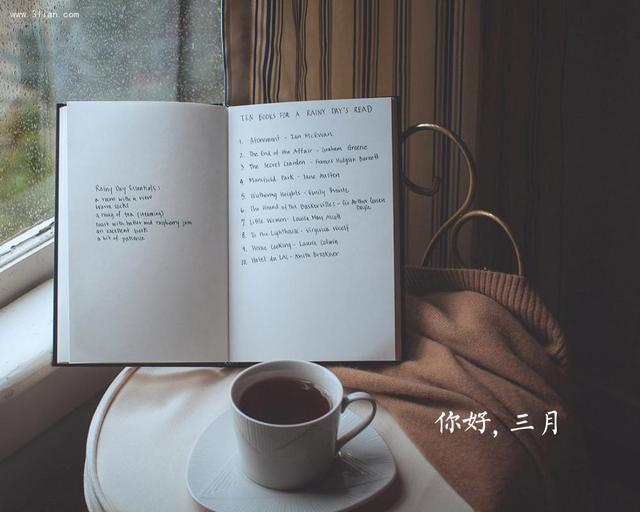 www.3lian.com
Rainy Day Essentials:
a room with a view
warm socks
a mug of tea (steaming)
toast with butter and raspberry jam
an excellent book
a bit of patience
TEN BOOKS FOR A RAINY DAY'S READ
1. Atonement - Ian McEwan
2. The End of the Affair - Graham Greene
3. The Secret Garden - Frances Hodgson Burnett
4. Mansfield Park - Jane Austen
5. Wuthering Heights - Emily Bronte
6. The Hound of the Baskervilles - Sir Arthur Conan
Doyle
7. Little Women - Louisa May Alcott
8. To the Lighthouse - Virginia Woolf
9. Home Cooking - Laurie Colwin
10. Hotel du Lac - Anita Brookner
你好，三月